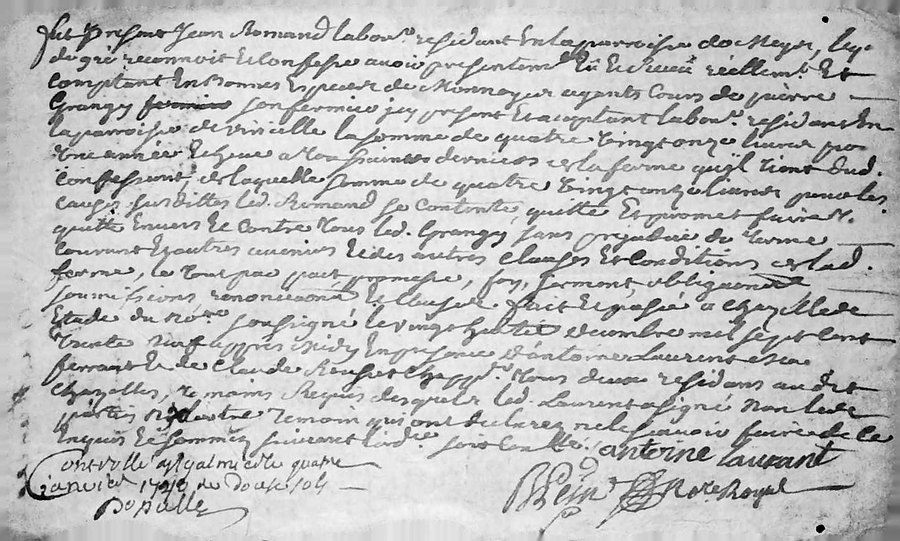 fut present Jean Romand labour. residant En la parroisse de Meyer, leq.
de gré reconnoit Et Confesse avoir presentemt. Eû Et Receu réellemt. Et
comptant En Bonnes Especes de Monnoyes ayants Cours de pierre
Grangy fermier son fermier icy present Et acceptant labour. residant En
la parroisse de viricelle la somme de quatre vingt onze livres por
Une année Echeue a Toussaints dernier de la ferme qu'jl Tient dud.
Confessant, de laquelle somme de quatre vingt onze livres pour les
causes susdittes led. Romand se Contente quitte Et promet faire
quitte Envers Et Contre Tous led. Grangy sans prejudice du Terme
Courant Et autres avenirs Et des autres Clauses Et Conditions de lad.
ferme, le Tout par pact promesse, foy, serment, obligaons
soumissions, renonciaons Et Clauses fait Et passé a Chazelle de
Etude du No.re soussigné le vingt huit decembre mil sept cent
trente neuf apprès midy En presence d'antoine Laurent
ferrant Et de Claude Tous deux residans audit
Chazelles, Temoins Requis desquels led. Laurent a signé Non lesd.
parties Ny lautre Temoin qui ont declarez ne le sçavoir faire de ce
Enquis Et sommez suivant Lord.ce antoine laurant
Controllé a St galmier le quatre
janvier 1740 Reçu douze sols
Notre Royal